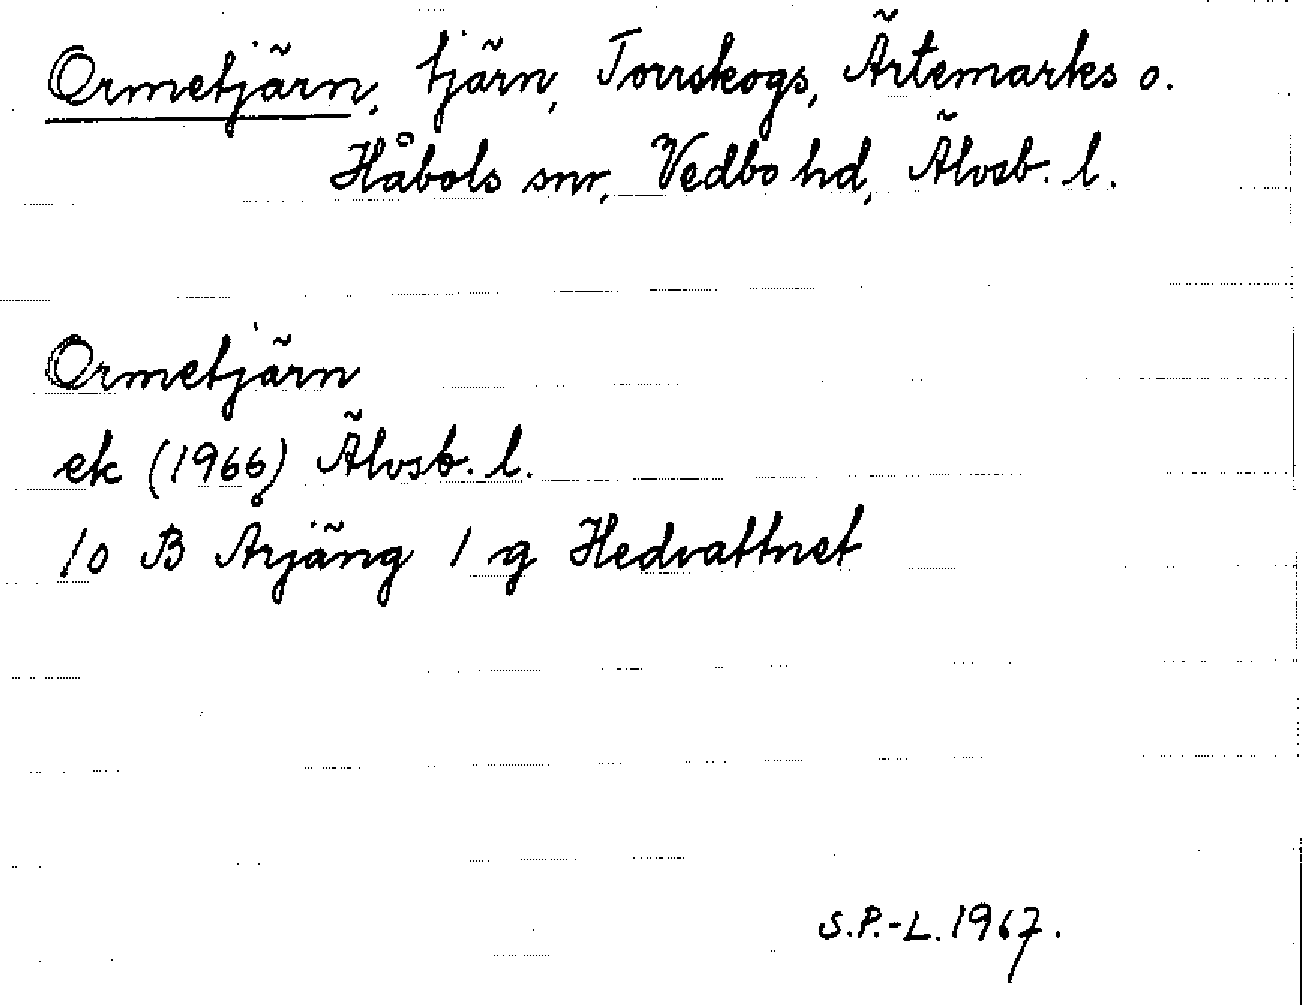 Ormetjärn, tjärn, Torrskogs, Ärtemarks o.
Håbols snr, Vedbo hd, Älvsb. l.
Ormetjärn
ek (1966) Älvsb. l.
10 B Årjäng 1 g Hedvattnet
S.P.-L. 1967.